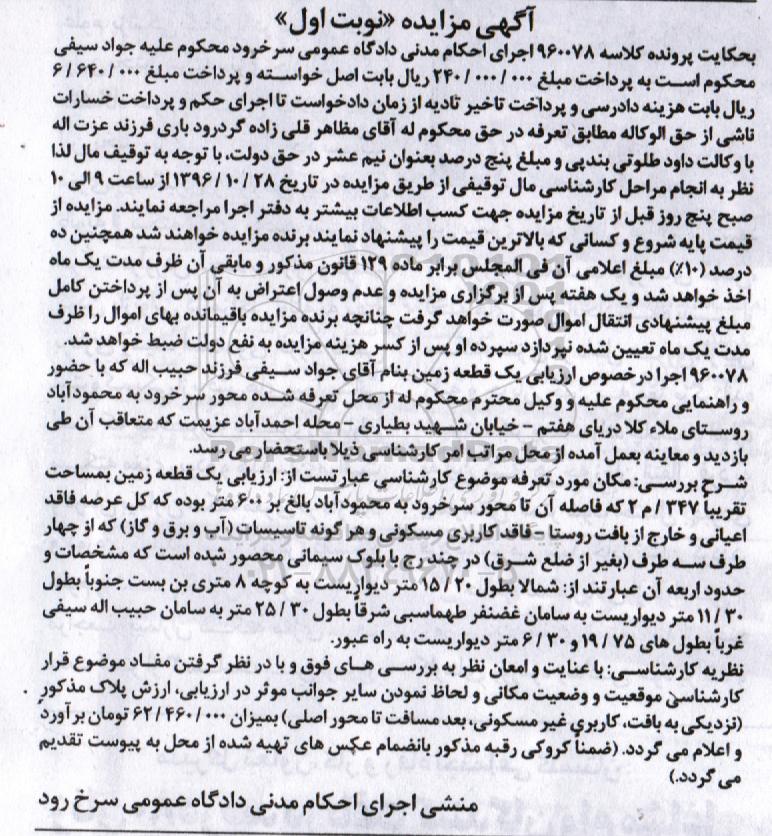 آگهی مزایده «نوبت اول»
بحکایت پرونده کلاسه ۹۶۰۰۷۸ اجرای احکام مدنی دادگاه عمومی سرخرود محکوم علیه جواد سیفی
محکوم است به پرداخت مبلغ ۲۴۰/۰۰۰/۰۰۰ ریال بابت اصل خواسته و پرداخت مبلغ ۶/۶۴۰/۰۰۰
ریال بابت هزینه دادرسی و پرداخت تاخیر تادیه از زمان دادخواست تا اجرای حکم و پرداخت خسارات
ناشی از حق الوکاله مطابق تعرفه در حق محکوم له آقای مظاهر قلی زاده گردرود باری فرزند عزت اله
با وکالت داود طلوتی بندپی و مبلغ پنج درصد بعنوان نیم عشر در حق دولت، با توجه به توقیف مال لذا
نظر به انجام مراحل کارشناسی مال توقیفی از طریق مزایده در تاریخ ۱۳۹۶/۱۰/۲۸ از ساعت ۹ الی ۱۰
صبح پنج روز قبل از تاریخ مزایده جهت کسب اطلاعات بیشتر به دفتر اجرا مراجعه نمایند. مزایده از
قیمت پایه شروع و کسانی که بالاترین قیمت را پیشنهاد نمایند برنده مزایده خواهند شد همچنین ده
درصد (۱۰٪) مبلغ اعلامی آن فی المجلس برابر ماده ۱۲۹ قانون مذکور و مابقی آن ظرف مدت یک ماه
اخذ خواهد شد و یک هفته پس از برگزاری مزایده و عدم وصول اعتراض به آن پس از پرداختن کامل
مبلغ پیشنهادی انتقال اموال صورت خواهد گرفت چنانچه برنده مزایده باقیمانده بهای اموال را ظرف
مدت یک ماه تعیین شده نپردازد سپرده او پس از کسر هزینه مزایده به نفع دولت ضبط خواهد شد.
۹۶۰۰۷۸ اجرا درخصوص ارزیابی یک قطعه زمین بنام آقای جواد سیفی فرزند حبیب اله که با حضور
و راهنمایی محکوم علیه و وکیل محترم محکوم له از محل تعرفه شده محور سرخرود به محمودآباد
روستای ملاء کلا دریای هفتم - خیابان شهید بطیاری - محله احمدآباد عزیمت که متعاقب آن طی
بازدید و معاینه بعمل آمده از محل مراتب امر کارشناسی ذیلا باستحضار می رسد.
شرح بررسی: مکان مورد تعرفه موضوع کارشناسی عبارتست از: ارزیابی یک قطعه زمین بمساحت
تقریباً ۳۴۷/م۲ که فاصله آن تا محور سرخرود به محمودآباد بالغ بر ۶۰۰ متر بوده که کل عرصه فاقد
اعیانی و خارج از بافت روستا - فاقد کاربری مسکونی و هرگونه تاسیسات (آب و برق و گاز) که از چهار
طرف سه طرف (بغیر از ضلع شرق) در چند رج با بلوک سیمانی محصور شده است که مشخصات و
حدود اربعه آن عبارتند از: شمالا بطول ۱۵/۲۰ متر دیواریست به کوچه ۸ متری بن بست جنوباً بطول
۱۱/۳۰ متر دیواریست به سامان غضنفر طهماسبی شرقاً بطول ۲۵/۳۰ متر به سامان حبیب اله سیفی
غرباً بطول های ۱۹/۷۵ و ۶/۳۰ متر دیواریست به راه عبور.
نظریه کارشناسی: با عنایت و امعان نظر به بررسی های فوق و با در نظر گرفتن مفاد موضوع قرار
کارشناسی موقعیت و وضعیت مکانی و لحاظ نمودن سایر جوانب موثر در ارزیابی، ارزش پلاک مذکور
(نزدیکی به بافت، کاربری غیر مسکونی، بعد مسافت تا محور اصلی) بمیزان ۶۲/۴۶۰/۰۰۰ تومان برآورد
و اعلام می گردد. (ضمناً کروکی رقبه مذکور بانضمام عکس های تهیه شده از محل به پیوست تقدیم
می گردد.)
منشی اجرای احکام مدنی دادگاه عمومی سرخ رود